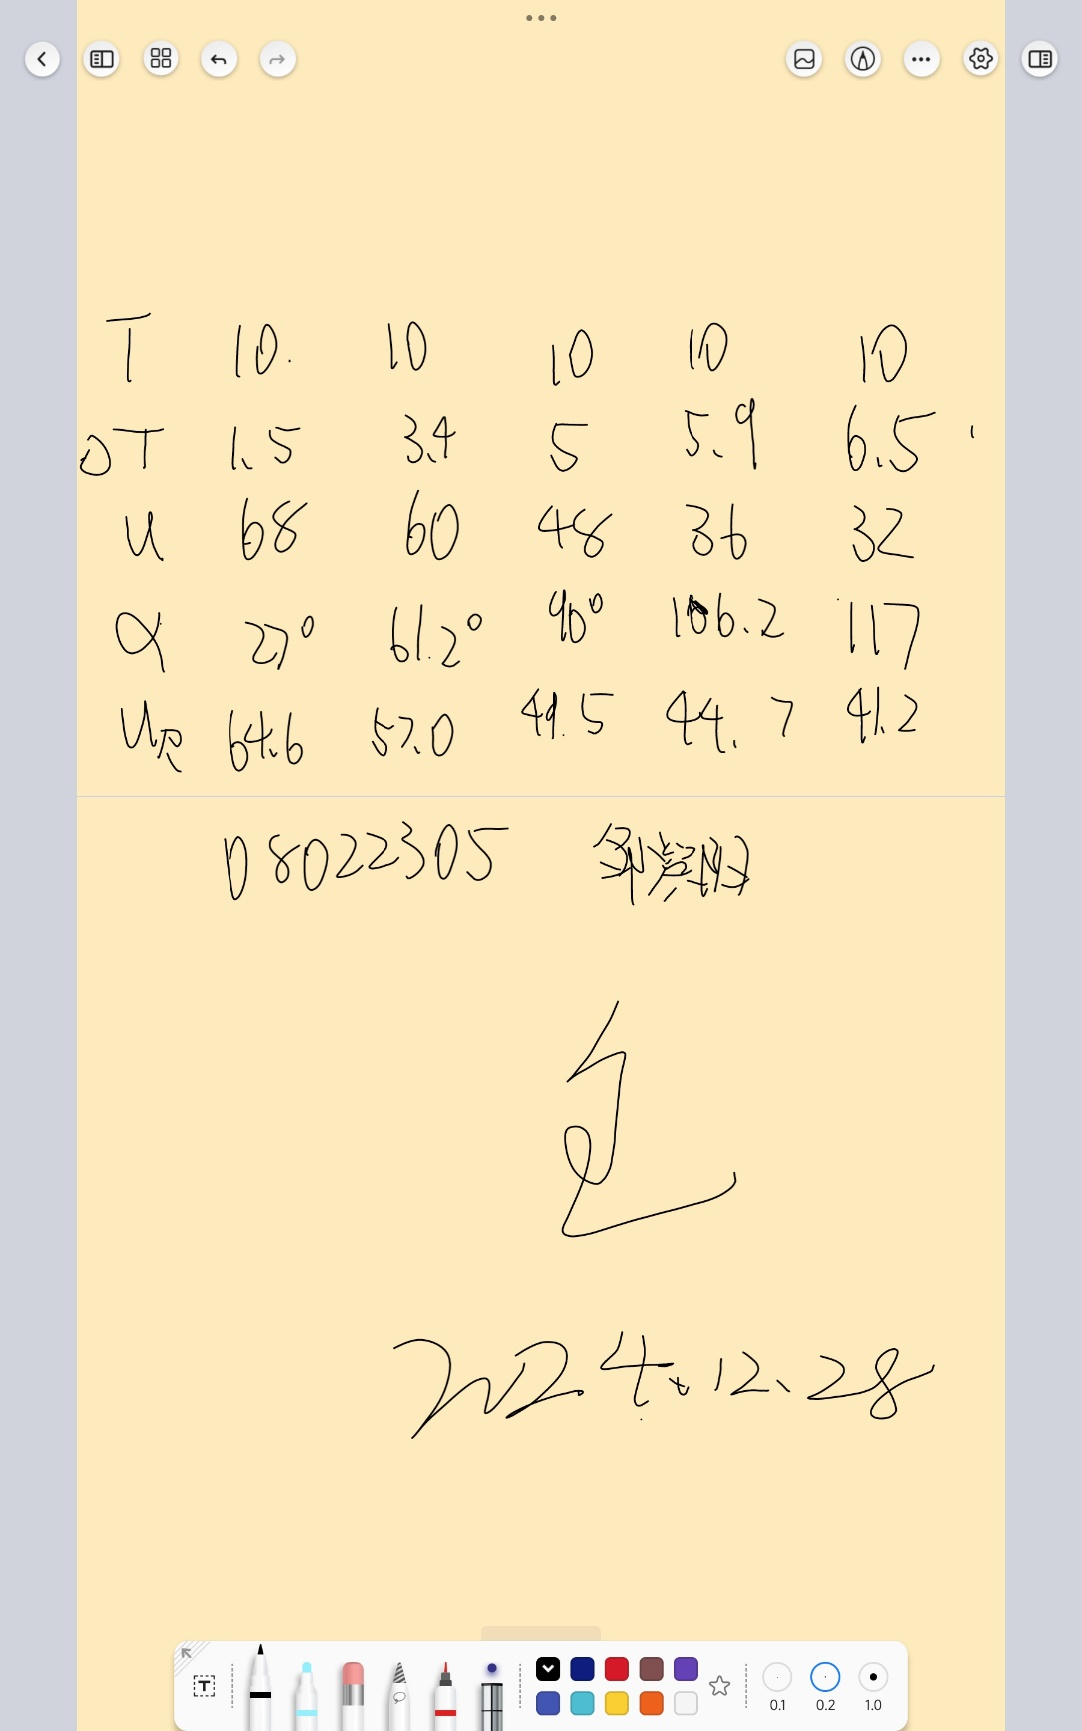 T 10. 10 10 10 10
ΔT 1.5 3.4 5 5.9 6.5
U 68 60 48 36 32
α 27° 61.2° 90° 106.2 117
UR 64.6 57.0 49.5 44.7 41.2
08022305 邹
2024.12.28
T
0.1 0.2 1.0